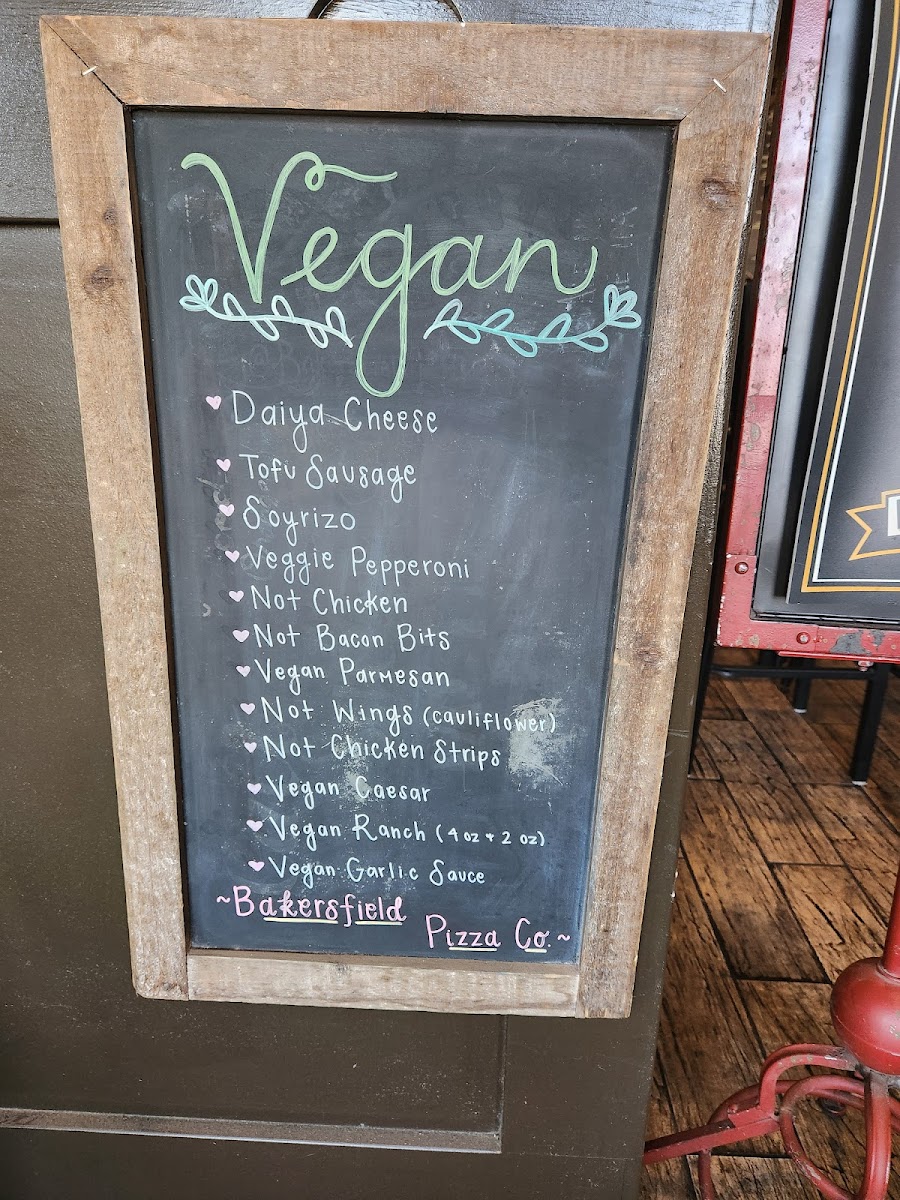 Vegan
Daiya Cheese
Tofu Sausage
Soyrizo
Veggie Pepperoni
Not Chicken
Not Bacon Bits
Vegan Parmesan
Not Wings (cauliflower)
Not Chicken Strips
Vegan Caesar
Vegan Ranch (4 oz + 2 oz)
Vegan Garlic Sauce
~Bakersfield
Pizza Co.~